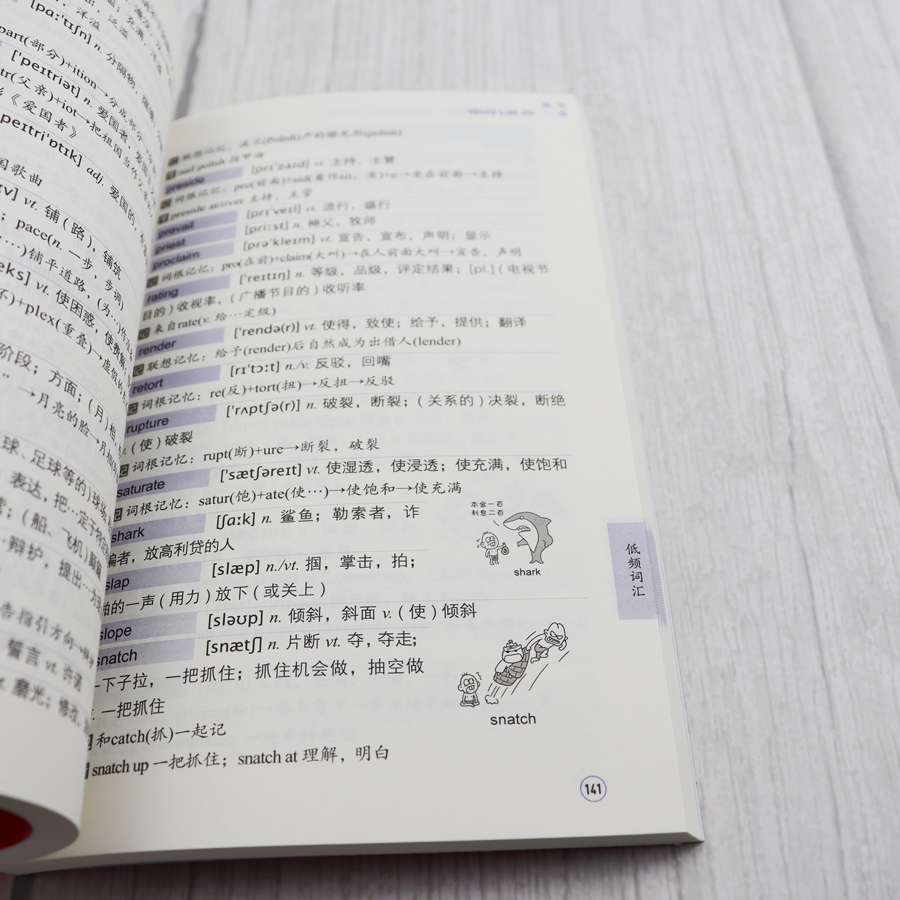 [pɑːˈtɪʃn] n. 分隔物，隔
part(部分)+ition→分成部分
[ˈpeɪtriət] n. 爱国者，爱国
tr(父亲)+iot→把祖国当作父
《爱国者》
peɪtriˈɒtɪk] adj. 爱国的，有
国歌曲
ɪv] vt. 铺（路），铺筑
；pace(n. 一步，步调)
…)铺平道路，(为…)作
eks] vt. 使困惑，使费解
)+plex(重叠)→虚
阶段；方面；（月）相
”→月亮的脸→月相
球、足球等的）球场
表达，把…定于
；（船、飞机）颠簸
辩护，提出…
告指引方向→
誓言 vt. 许诺
磨光；修改
Word List 20
联想记忆：波兰(Polish)产的指甲光剂(polish)
nail polish 指甲油
preside [prɪˈzaɪd] vi. 主持，主管
词根记忆：pre(前面)+sid(看作sit，坐)+e→坐在前面→主持
preside at/over 主持，主管
prevail [prɪˈveɪl] vi. 流行，盛行
priest [priːst] n. 神父，牧师
proclaim [prəˈkleɪm] vt. 宣告，宣布，声明；显示
词根记忆：pro(在前)+claim(大叫)→在人前面大叫→宣告，声明
rating [ˈreɪtɪŋ] n. 等级，品级，评定结果；[pl.]（电视节
目的）收视率，（广播节目的）收听率
来自rate(v. 给…定级)
render [ˈrendə(r)] vt. 使得，致使；给予，提供；翻译
联想记忆：给予(render)后自然成为出借人(lender)
retort [rɪˈtɔːt] n./v. 反驳，回嘴
词根记忆：re(反)+tort(扭)→反扭→反驳
rupture [ˈrʌptʃə(r)] n. 破裂，断裂；（关系的）决裂，断绝
（使）破裂
词根记忆：rupt(断)+ure→断裂，破裂
saturate [ˈsætʃəreɪt] vt. 使湿透，使浸透；使充满，使饱和
词根记忆：satur(饱)+ate(使…)→使饱和→使充满
shark [ʃɑːk] n. 鲨鱼；勒索者，诈
骗者，放高利贷的人
slap [slæp] n./vt. 掴，掌击，拍；
啪的一声（用力）放下（或关上）
slope [sləʊp] n. 倾斜，斜面 v.（使）倾斜
snatch [snætʃ] n. 片断 vt. 夺，夺走；
一下子拉，一把抓住；抓住机会做，抽空做
一把抓住
和catch(抓)一起记
snatch up 一把抓住；snatch at 理解，明白
本金一百
利息二百
shark
snatch
低频词汇
141